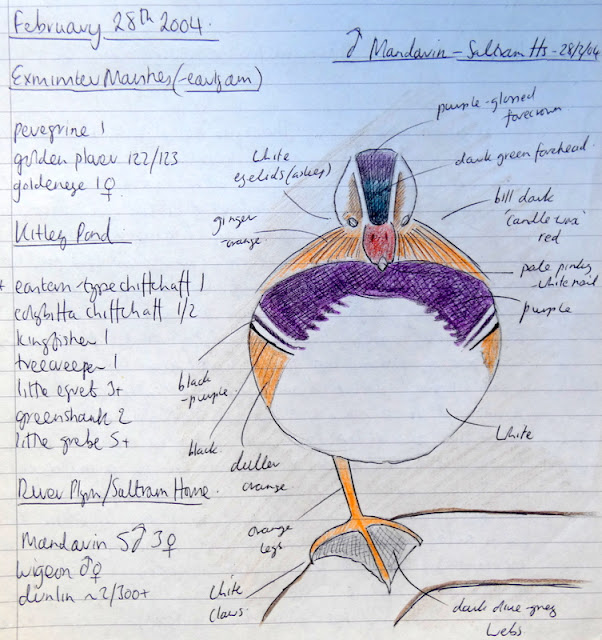 February 28th 2004.
♂ Mandarin - Saltram Hs - 28/2/04
Exminster Marshes (-early am)
peregrine 1
golden plover 122/123
goldeneye 1♀
Kitley Pond
+ eastern-type chiffchaff 1
collybitta chiffchaff 1/2
kingfisher 1
treecreeper 1
little egret 3+
greenshank 2
little grebe 5+
River Plym/Saltram Home.
Mandarin 5♂ 3♀
wigeon ♂♀
dunlin ~2/300+
purple-glossed
forecrown
dark green forehead.
white
eyelids (asleep)
bill dark
'candle wax'
red
ginger
-orange
pale pinky
-white nail
purple
black
-purple
black
duller
orange
white
orange
legs
white
claws
dark blue-grey
webs